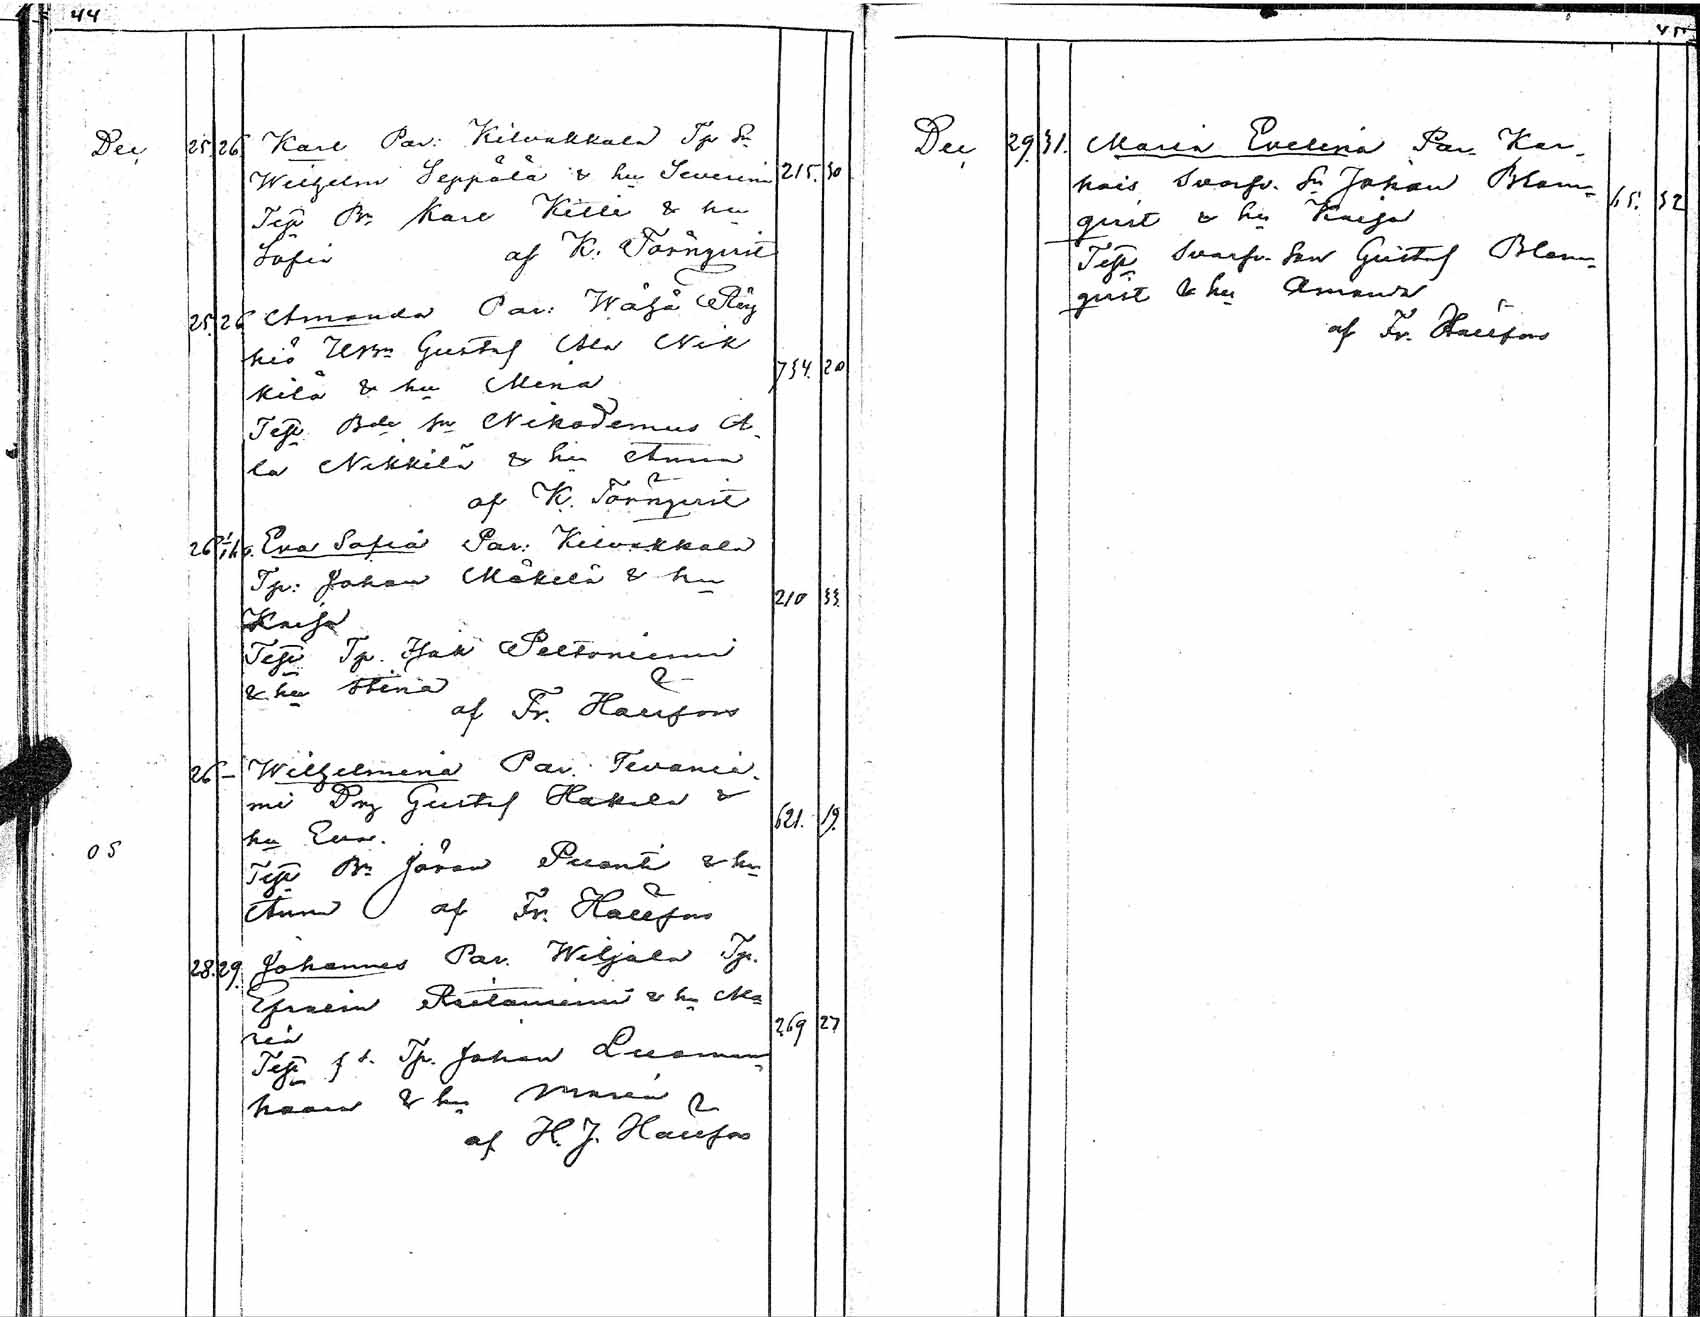 44
Dec. 25. 26. Karl Par: Kilvakkala Tp Sn
Wilhelm Seppälä & hu Severina 215. 30
Test Bn Karl Kille & hu
Sofia af K. Törnqvist
25. 26. Amanda Par: Röy
hiö Gustaf Ala Nik
kilä & hu Mina 754. 20
Test Bde sn Nikodemus A-
la Nikkilä & hu Anna
af K. Törnqvist
26 Eva Sofia Par: Kilvakkala
Tp: Johan Mäkelä & hu 210 33.
Kaisa
Test Tp. Isak Peltoniemi
& hu Stina
af Fr. Hallfors
26 – Wilhelmina Par. Tevanie-
mi Drg Gustaf Hakala & 621. 19.
hu Eva.
05
Test Bn Jöran & hu
Anna af Fr. Hallfors
28. 29. Johannes Par. Wiljala Tp.
Efraim & hu Ma
ria 269 27
Test f d. Tp. Johan
haara & hu Maria
af H. J. Hallfors
45
Dec. 29. 31. Maria Evelina Par. Kar-
hais Svarfv. Sn Johan Blom-
qvist & hu Kaisa 65. 52
Test Svarfv. Son Gustaf Blom-
qvist & hu Amanda
af Fr. Hallfors